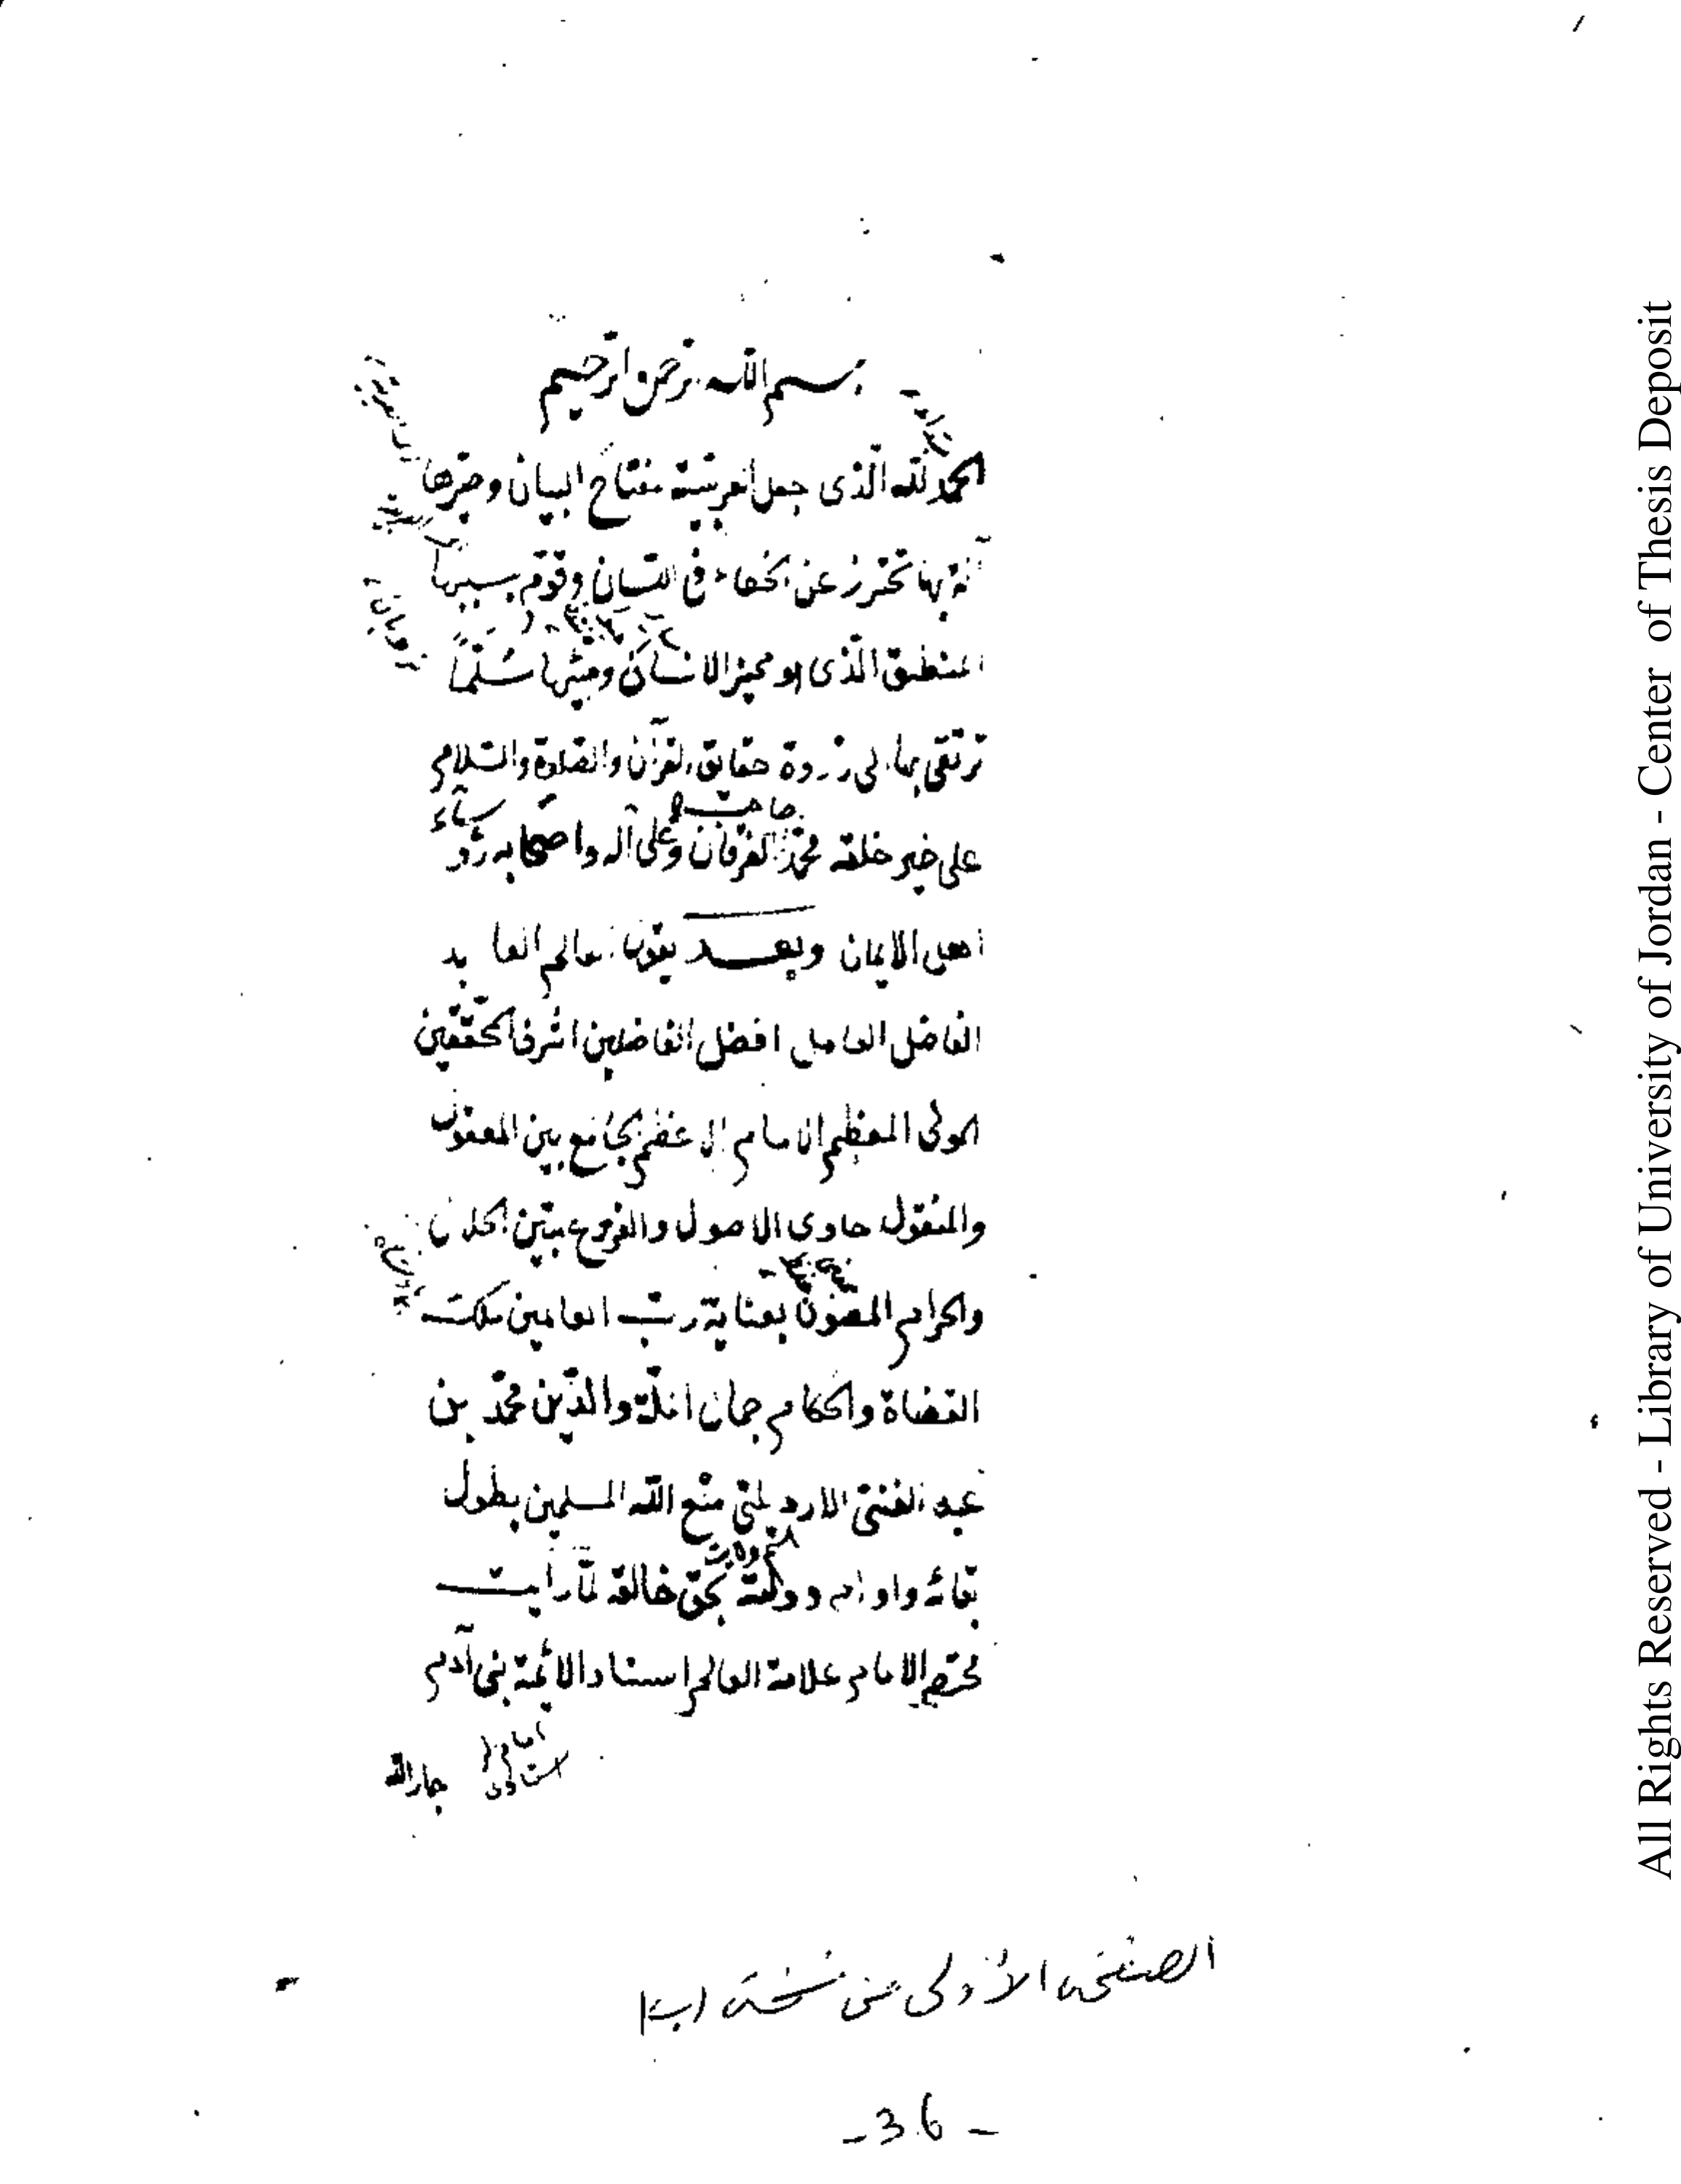 بسم الله الرحمن الرحيم
الحمد لله الذى جعل العربية مفتاح البيان وصيرها
آلة بها تحترز عن الخطاء فى اللسان وقوم بسببها
المنطق الذى هو مميز الانسان سلما
ترتقى بها الى ذروة حقايق القرآن والصلوة والسلام
على خير خلقه محمد صاحب الفرقان وعلى آله واصحابه رؤساء
اهل الايمان وبعد يقول العالم العابد
الفاضل العامل افضل الفاضلين اشرف المحققين
المولى المعظم الامام الاعظم الجامع بين المعقول
والمنقول حاوى الاصول والفروع مبين الحلال
والحرام المصون بعناية رب العالمين ملك
القضاة والحكام جمال الملة والدين محمد بن
عبد الغنى الاردبيلى متع الله المسلمين بطول
بقائه وادام دولته بحق خالقه لما رأيت
مختصر الامام علامة العالم استاد الائمة بنى آدم
جار الله
الصفحة الأولى من نسخة (ب)
-36-
All Rights Reserved - Library of University of Jordan - Center of Thesis Deposit